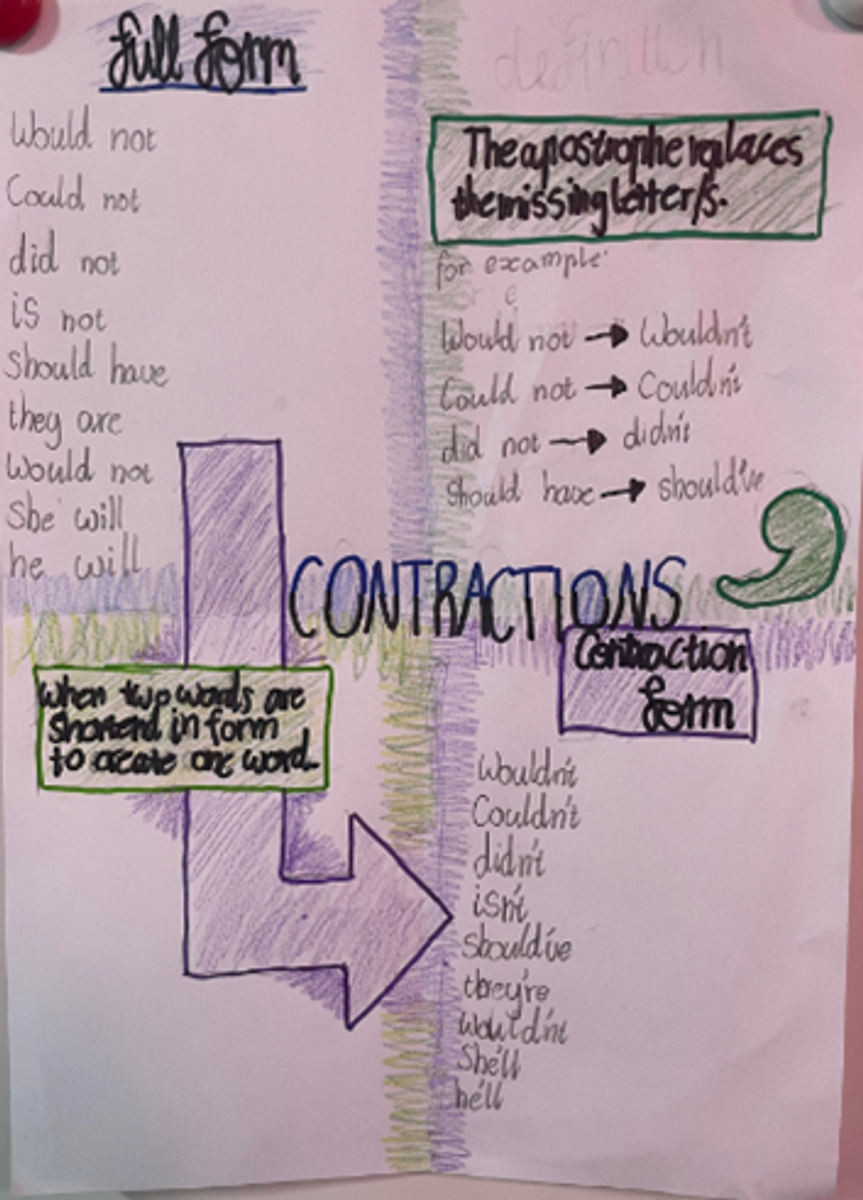 full form
Would not
Could not
did not
is not
should have
they are
would not
She will
he will
definition
The apostrophe replaces
the missing letter/s.
for example:
Would not → Wouldn't
Could not → Couldn't
did not → didn't
Should have → should've
CONTRACTIONS
When two words are
shortend in form
to create one word.
Contraction
form
Wouldn't
Couldn't
didn't
isn't
should've
they're
Wouldn't
She'll
he'll